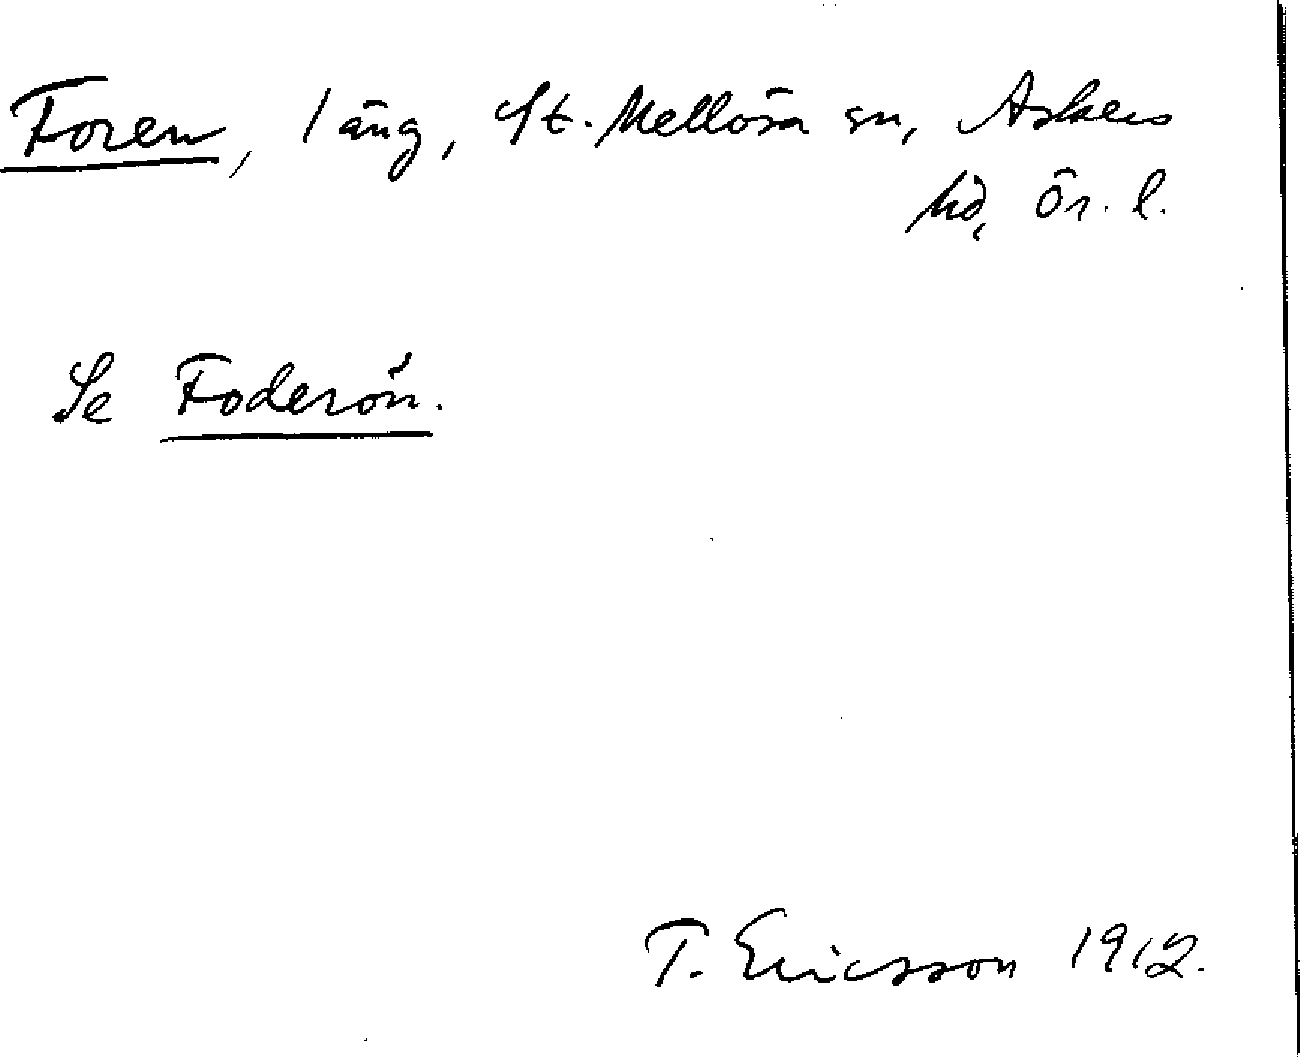 Foren, 1 äng, St. Mellösa sn, Askers
hd, Ör. l.
Se Foderön.
T. Ericsson 1912.